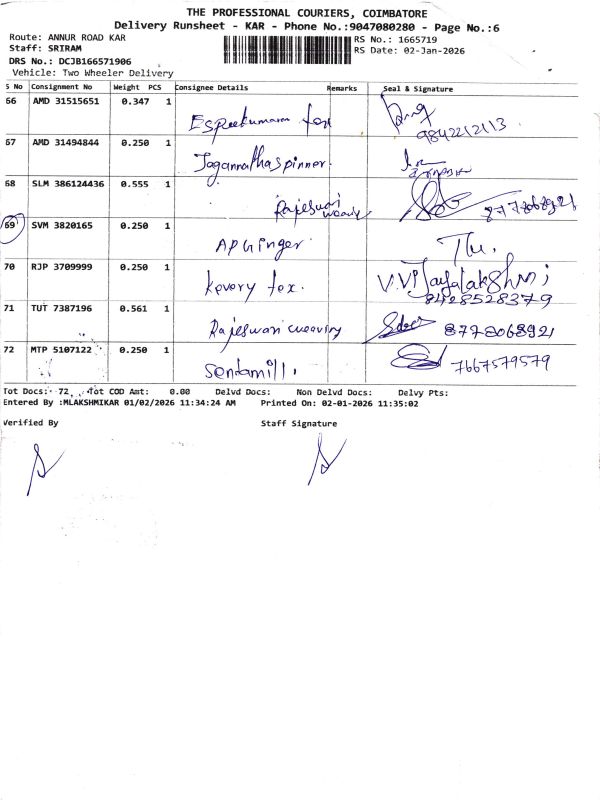 THE PROFESSIONAL COURIERS, COIMBATORE
Delivery Runsheet - KAR - Phone No.:9047080280 - Page No.:6
Route: ANNUR ROAD KAR
RS No.: 1665719
Staff: SRIRAM
RS Date: 02-Jan-2026
DRS No.: DCJB166571906
Vehicle: Two Wheeler Delivery
S No Consignment No Weight PCS Consignee Details Remarks Seal & Signature
66 AMD 31515651 0.347 1
9842212113
67 AMD 31494844 0.250 1 Jagannathaspinner.
68 SLM 386124436 0.555 1 Rajeswari weaving 8778068921
69 SVM 3820165 0.250 1 AP Ginger
70 RJP 3709999 0.250 1 kevery tex. V.VIJayalakshmi
8428528379
71 TUT 7387196 0.561 1 Rajeswari weaving 8778068921
72 MTP 5107122 0.250 1 Sentamill. 7667579579
Tot Docs: 72 Tot COD Amt: 0.00 Delvd Docs: Non Delvd Docs: Delvy Pts:
Entered By :MLAKSHMIKAR 01/02/2026 11:34:24 AM Printed On: 02-01-2026 11:35:02
Verified By Staff Signature